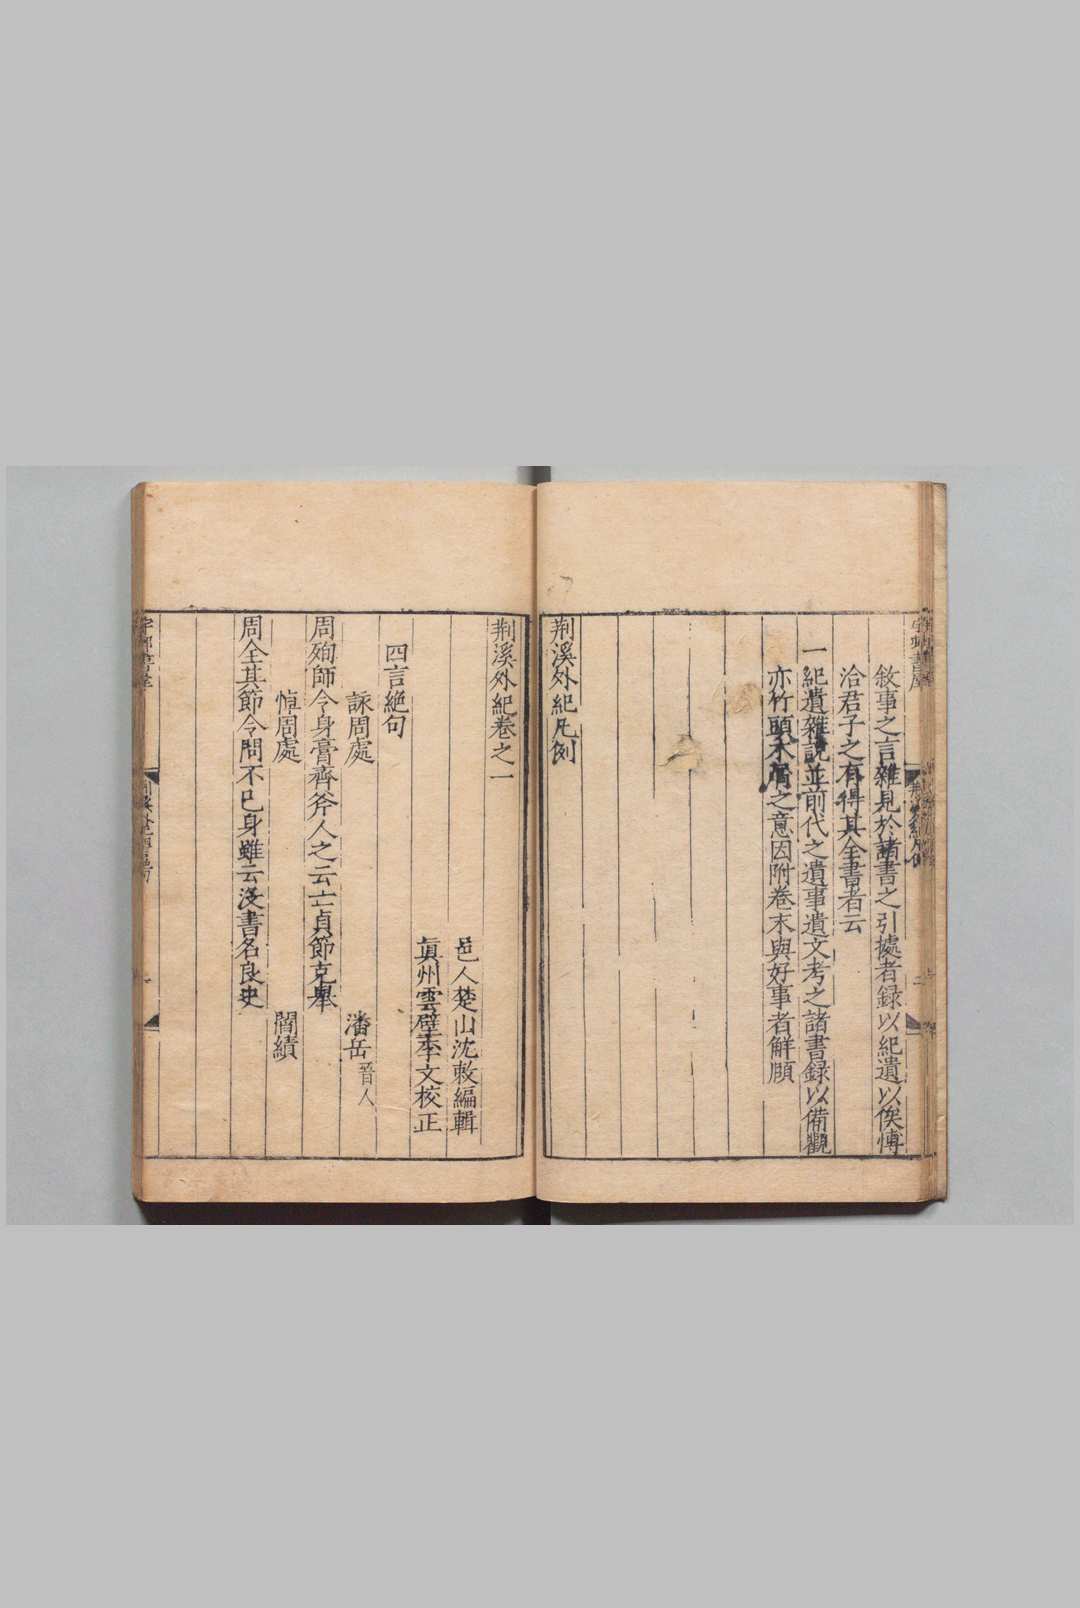 敘事之言雜見於諸書之引擄者録以紀遺以俟愽
洽君子之有得其全書者云
一紀遺雜説並前代之遺事遺文考之諸書録以備觀
亦竹頭木屑之意因附卷末與好事者解頤
荆溪外紀凡例
荆溪外紀卷之一
邑人楚山沈敕編輯
眞州雲壁李文校正
四言絶句
詠周處
潘岳晉人
周殉師令身膏齊斧人之云亡貞節克舉
悼周處
閻纘
周全其節令問不已身雖云沒書名良史